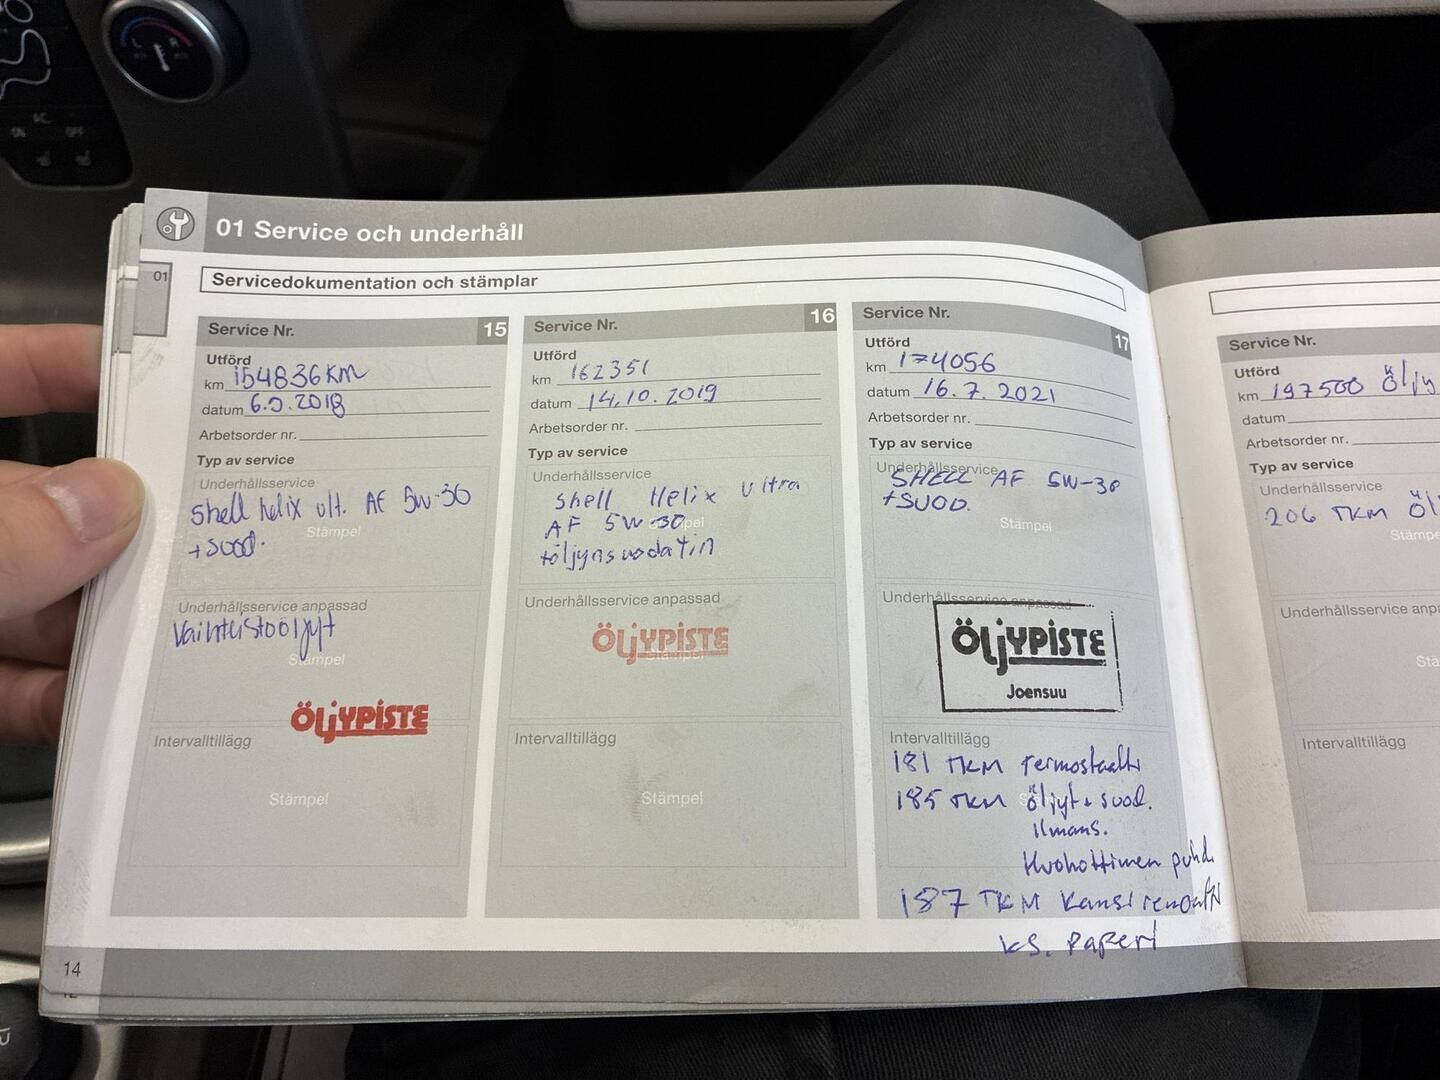 01 Service och underhåll
01
Servicedokumentation och stämplar
Service Nr. 15
Utförd
km 154836 KM
datum 6.9.2018
Arbetsorder nr.
Typ av service
Underhållsservice
Shell helix ult. AF 5W-30
Stämpel
+ suod.
Underhållsservice anpassad
Vaihteistoöljyt
Stämpel
ÖLJYPISTE
Intervalltillägg
Stämpel
Service Nr. 16
Utförd
km 162351
datum 14.10.2019
Arbetsorder nr.
Typ av service
Underhållsservice
Shell Helix Ultra
AF 5W-30
+öljynsuodatin
Underhållsservice anpassad
ÖLJYPISTE
Stämpel
Intervalltillägg
Stämpel
Service Nr. 17
Utförd
km 174056
datum 16.7.2021
Arbetsorder nr.
Typ av service
Underhållsservice
SHELL AF 5W-30
+SUOD.
Stämpel
Underhållsservice anpassad
ÖLJYPISTE
Joensuu
Intervalltillägg
181 TKM Termostaatti
185 TKM öljyt + suod.
ilmans.
Huohottimen puhd.
187 TKM Kansiremontti
ks. Paperi
14
Service Nr.
Utförd
km 197500 Öljy
datum
Arbetsorder nr.
Typ av service
Underhållsservice
206 TKM Öl
Stämpe
Underhållsservice anpa
Stä
Intervalltillägg